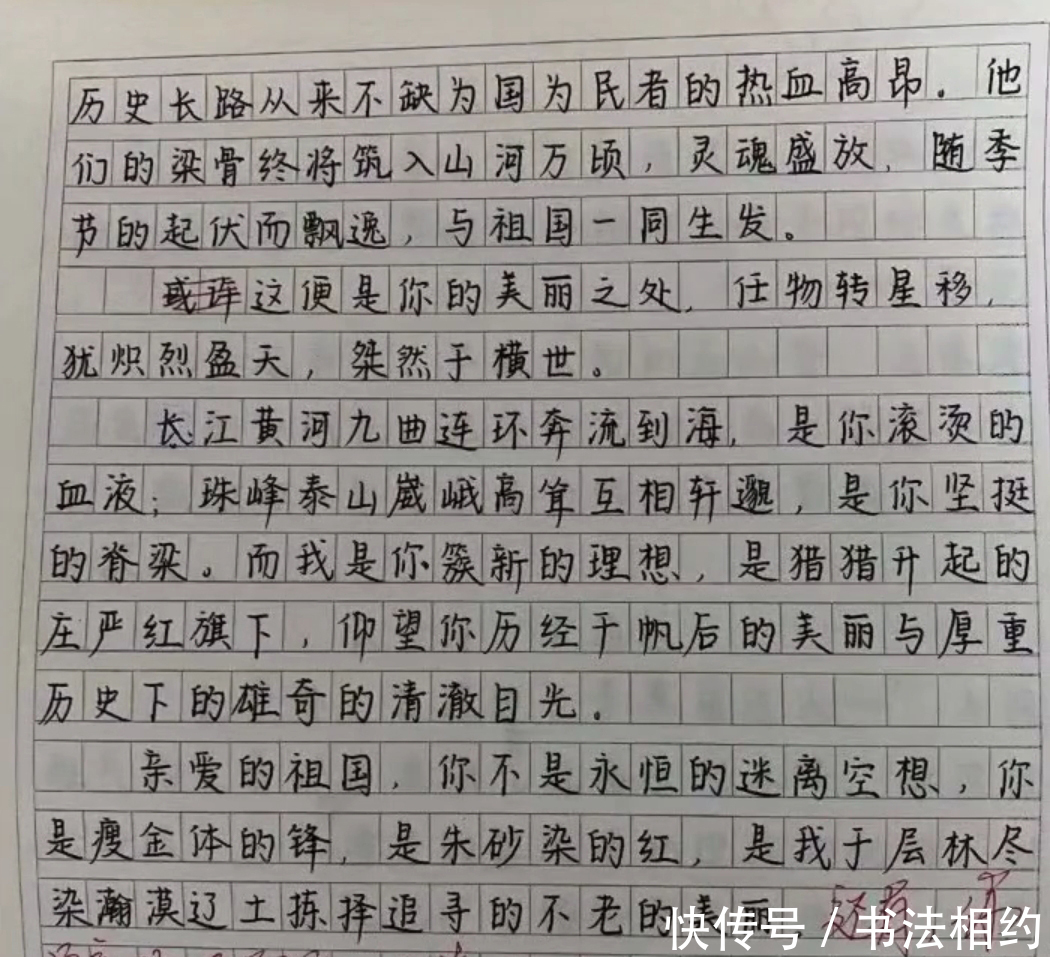 历史长路从来不缺为国为民者的热血高昂。他
们的梁骨终将筑入山河万顷，灵魂盛放，随季
节的起伏而飘逸，与祖国一同生发。
这便是你的美丽之处，任物转星移，
犹炽烈盈天，桀然于横世。
长江黄河九曲连环奔流到海，是你滚烫的
血液；珠峰泰山崴峨高耸互相轩邈，是你坚挺
的脊梁。而我是你簇新的理想，是猎猎升起的
庄严红旗下，仰望你历经千帆后的美丽与厚重
历史下的雄奇的清澈目光。
亲爱的祖国，你不是永恒的迷离空想，你
是瘦金体的锋，是朱砂染的红，是我于层林尽
染瀚漠辽土拣择追寻的不老的美丽
快传号 / 书法相约